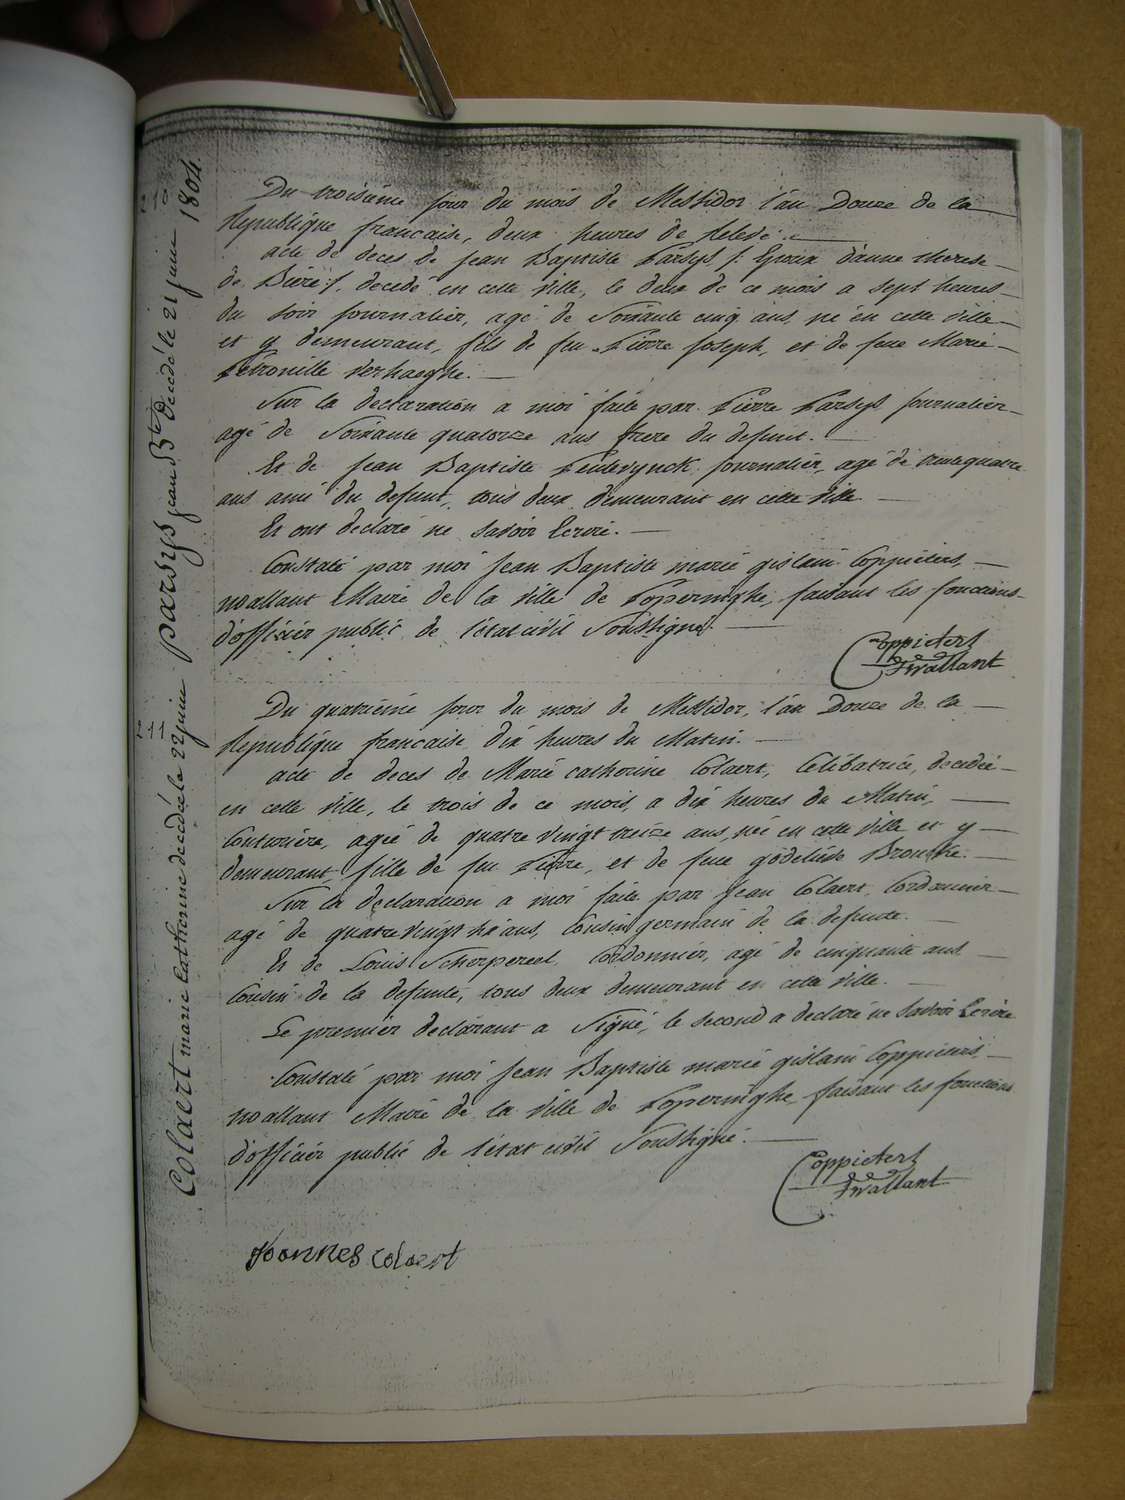 1804.
parsys jean Bte decedé le 21 juin
Du troisiéme jour du mois de Messidor l'an Douze de la
Republique francaise, deux heures de Relevé.
acte de deces de Jean Baptiste Parsys /: Epoux d'anne therese
de Biere :/ decedé en cette Ville, le deux de ce mois a sept heures
du soir journalier, age de Soixante cinq ans, né en cette Ville
et y demeurant, fils de feu Pierre Joseph, et de feue Marie
Petronille Verhaeghe.
Sur la declaration a moi faite par Pierre Parsys journalier
agé de Soixante quatorze ans frere du defunt.
Et de Jean Baptiste journalier, agé de
ans ami du defunt, tous deux demeurant en cette Ville
Et ont declaré ne Savoir Ecrire.
Constaté par moi Jean Baptiste marie gislain Coppieters
wallant Maire de la Ville de Poperinghe, faisant les fonctions
d'officier public de l'état civil Soussigné.
Coppieters
wallant
Colaert marie Catherine decedée le 22 juin
Du quatriéme jour du mois de Messidor, l'an Douze de la
Republique francaise dix heures du Matin.
acte de deces de Marie catherine Colaert, Celibatrice, decedée
en cette Ville, le trois de ce mois, a dix heures du Matin,
Couturiére, agée de quatre Vingt treize ans, née en cette Ville et y
demeurant, fille de feu Pierre, et de feue godelieve
Sur la declaration a moi faite par Jean Colaert, Cordonnier
agé de quatre Vingt ans, Cousin germain de la defunte.
Et de Louis Scherpereel, Cordonnier, agé de cinquante ans
Cousin de la defunte, tous deux demeurant en cette Ville.
Le premier declarant a Signé, le second a declaré ne Savoir Ecrire
Constaté par moi Jean Baptiste marie gislain Coppieters
wallant Maire de la Ville de Poperinghe, faisant les fonctions
d'officier public de l'état civil Soussigné.
Coppieters
wallant
Joannes Colaert